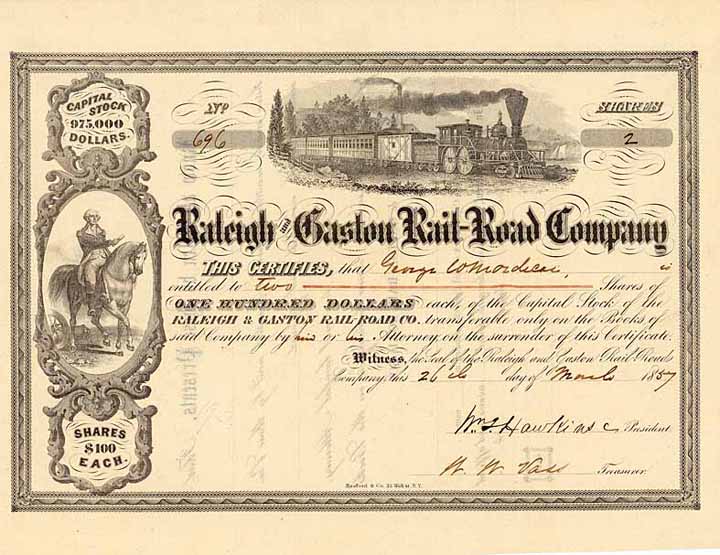 CAPITAL
STOCK
975,000
DOLLARS.
No
696
SHARES
2
Raleigh and Gaston Rail-Road Company
THIS CERTIFIES, that George W Mordecai, is
entitled to two Shares of
ONE HUNDRED DOLLARS each, of the Capital Stock of the
RALEIGH & GASTON RAIL-ROAD CO. transferable only on the Books of
said Company by him or his Attorney on the surrender of this Certificate.
Witness, the Seal of the Raleigh and Gaston Rail-Road
Company, this 26th day of March 1857
Wm J Hawkins President
W. W. Vass Treasurer.
SHARES
$100
EACH.